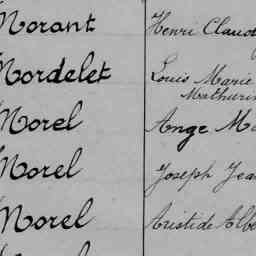 Morant Henri Claud
Mordelet Louis Marie
Mathurin
Morel Ange Ma
Morel Joseph Jea
Morel Aristide Albe